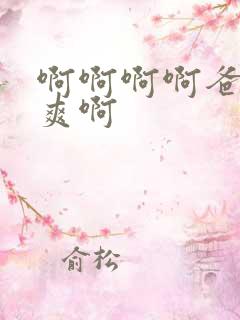 啊啊啊啊爸
爽啊
俞松